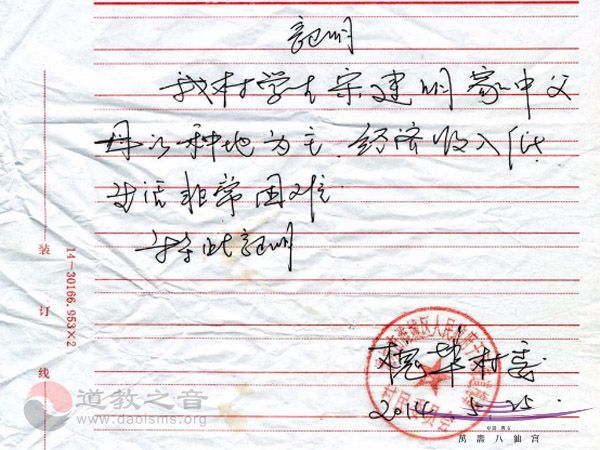 证明
我村学生宋建明家中父
母以种地为主.经济收入低
生活非常困难.
特此证明
槐芽村委
2014.5.25.
装
订
线
14—30166.953×2
道教之音
www.daoisms.org
中国 西安
萬壽八仙宫
村民委员会